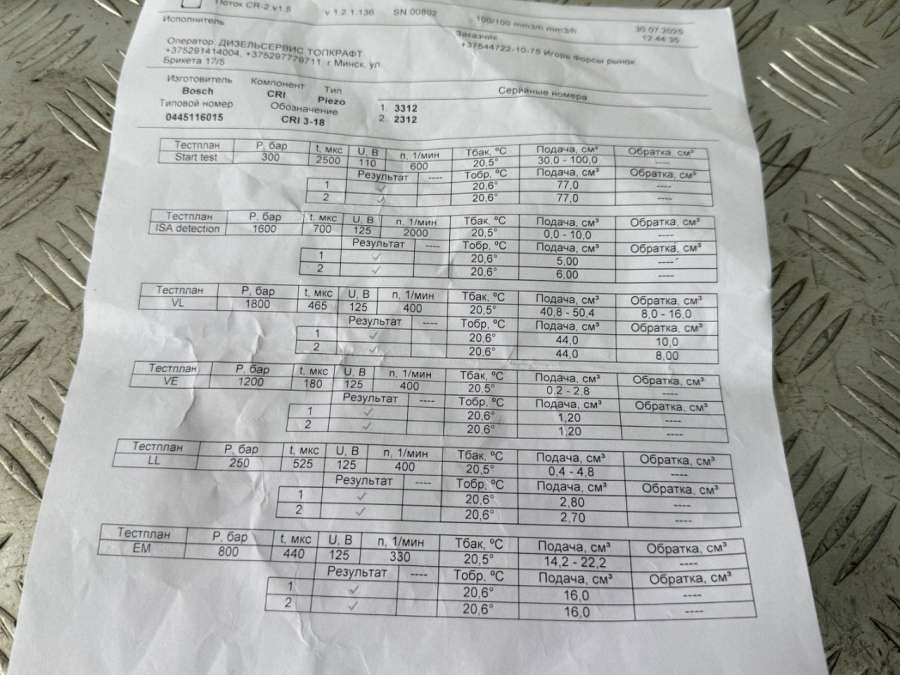 Поток CR-2 v1.5 v 1.2.1.136 SN 00802 100/100 mm3/h mm3/h 30.07.2025
Исполнитель Заказчик 12:44:35
Оператор: ДИЗЕЛЬСЕРВИС ТОПКРАФТ +37544722-10-75 Игорь Форсы рынок
+375291414004, +375297779711, г Минск, ул.
Брикета 17/5
Изготовитель Компонент Тип Серийные номера
Bosch CRI Piezo
Типовой номер Обозначение 1. 3312
0445116015 CRI 3-18 2. 2312
Тестплан P, бар t, мкс U, В n, 1/мин Tбак, ºC Подача, см³ Обратка, см³
Start test 300 2500 110 600 20.5° 30,0 - 100,0 ----
Результат ---- Тобр, ºC Подача, см³ Обратка, см³
1 ✓ 20,6° 77,0 ----
2 ✓ 20,6° 77,0 ----
Тестплан P, бар t, мкс U, В n, 1/мин Tбак, ºC Подача, см³ Обратка, см³
ISA detection 1600 700 125 2000 20,5° 0,0 - 10,0 ----
Результат ---- Тобр, ºC Подача, см³ Обратка, см³
1 ✓ 20,6° 5,00 ----
2 ✓ 20,6° 6,00 ----
Тестплан P, бар t, мкс U, В n, 1/мин Tбак, ºC Подача, см³ Обратка, см³
VL 1800 465 125 400 20,5° 40,8 - 50,4 8,0 - 16,0
Результат ---- Тобр, ºC Подача, см³ Обратка, см³
1 ✓ 20,6° 44,0 10,0
2 ✓ 20,6° 44,0 8,00
Тестплан P, бар t, мкс U, В n, 1/мин Tбак, ºC Подача, см³ Обратка, см³
VE 1200 180 125 400 20,5° 0,2 - 2,8 ----
Результат ---- Тобр, ºC Подача, см³ Обратка, см³
1 ✓ 20,6° 1,20 ----
2 ✓ 20,6° 1,20 ----
Тестплан P, бар t, мкс U, В n, 1/мин Tбак, ºC Подача, см³ Обратка, см³
LL 250 525 125 400 20,5° 0,4 - 4,8 ----
Результат ---- Тобр, ºC Подача, см³ Обратка, см³
1 ✓ 20,6° 2,80 ----
2 ✓ 20,6° 2,70 ----
Тестплан P, бар t, мкс U, В n, 1/мин Tбак, ºC Подача, см³ Обратка, см³
EM 800 440 125 330 20,5° 14,2 - 22,2 ----
Результат ---- Тобр, ºC Подача, см³ Обратка, см³
1 ✓ 20,6° 16,0 ----
2 ✓ 20,6° 16,0 ----